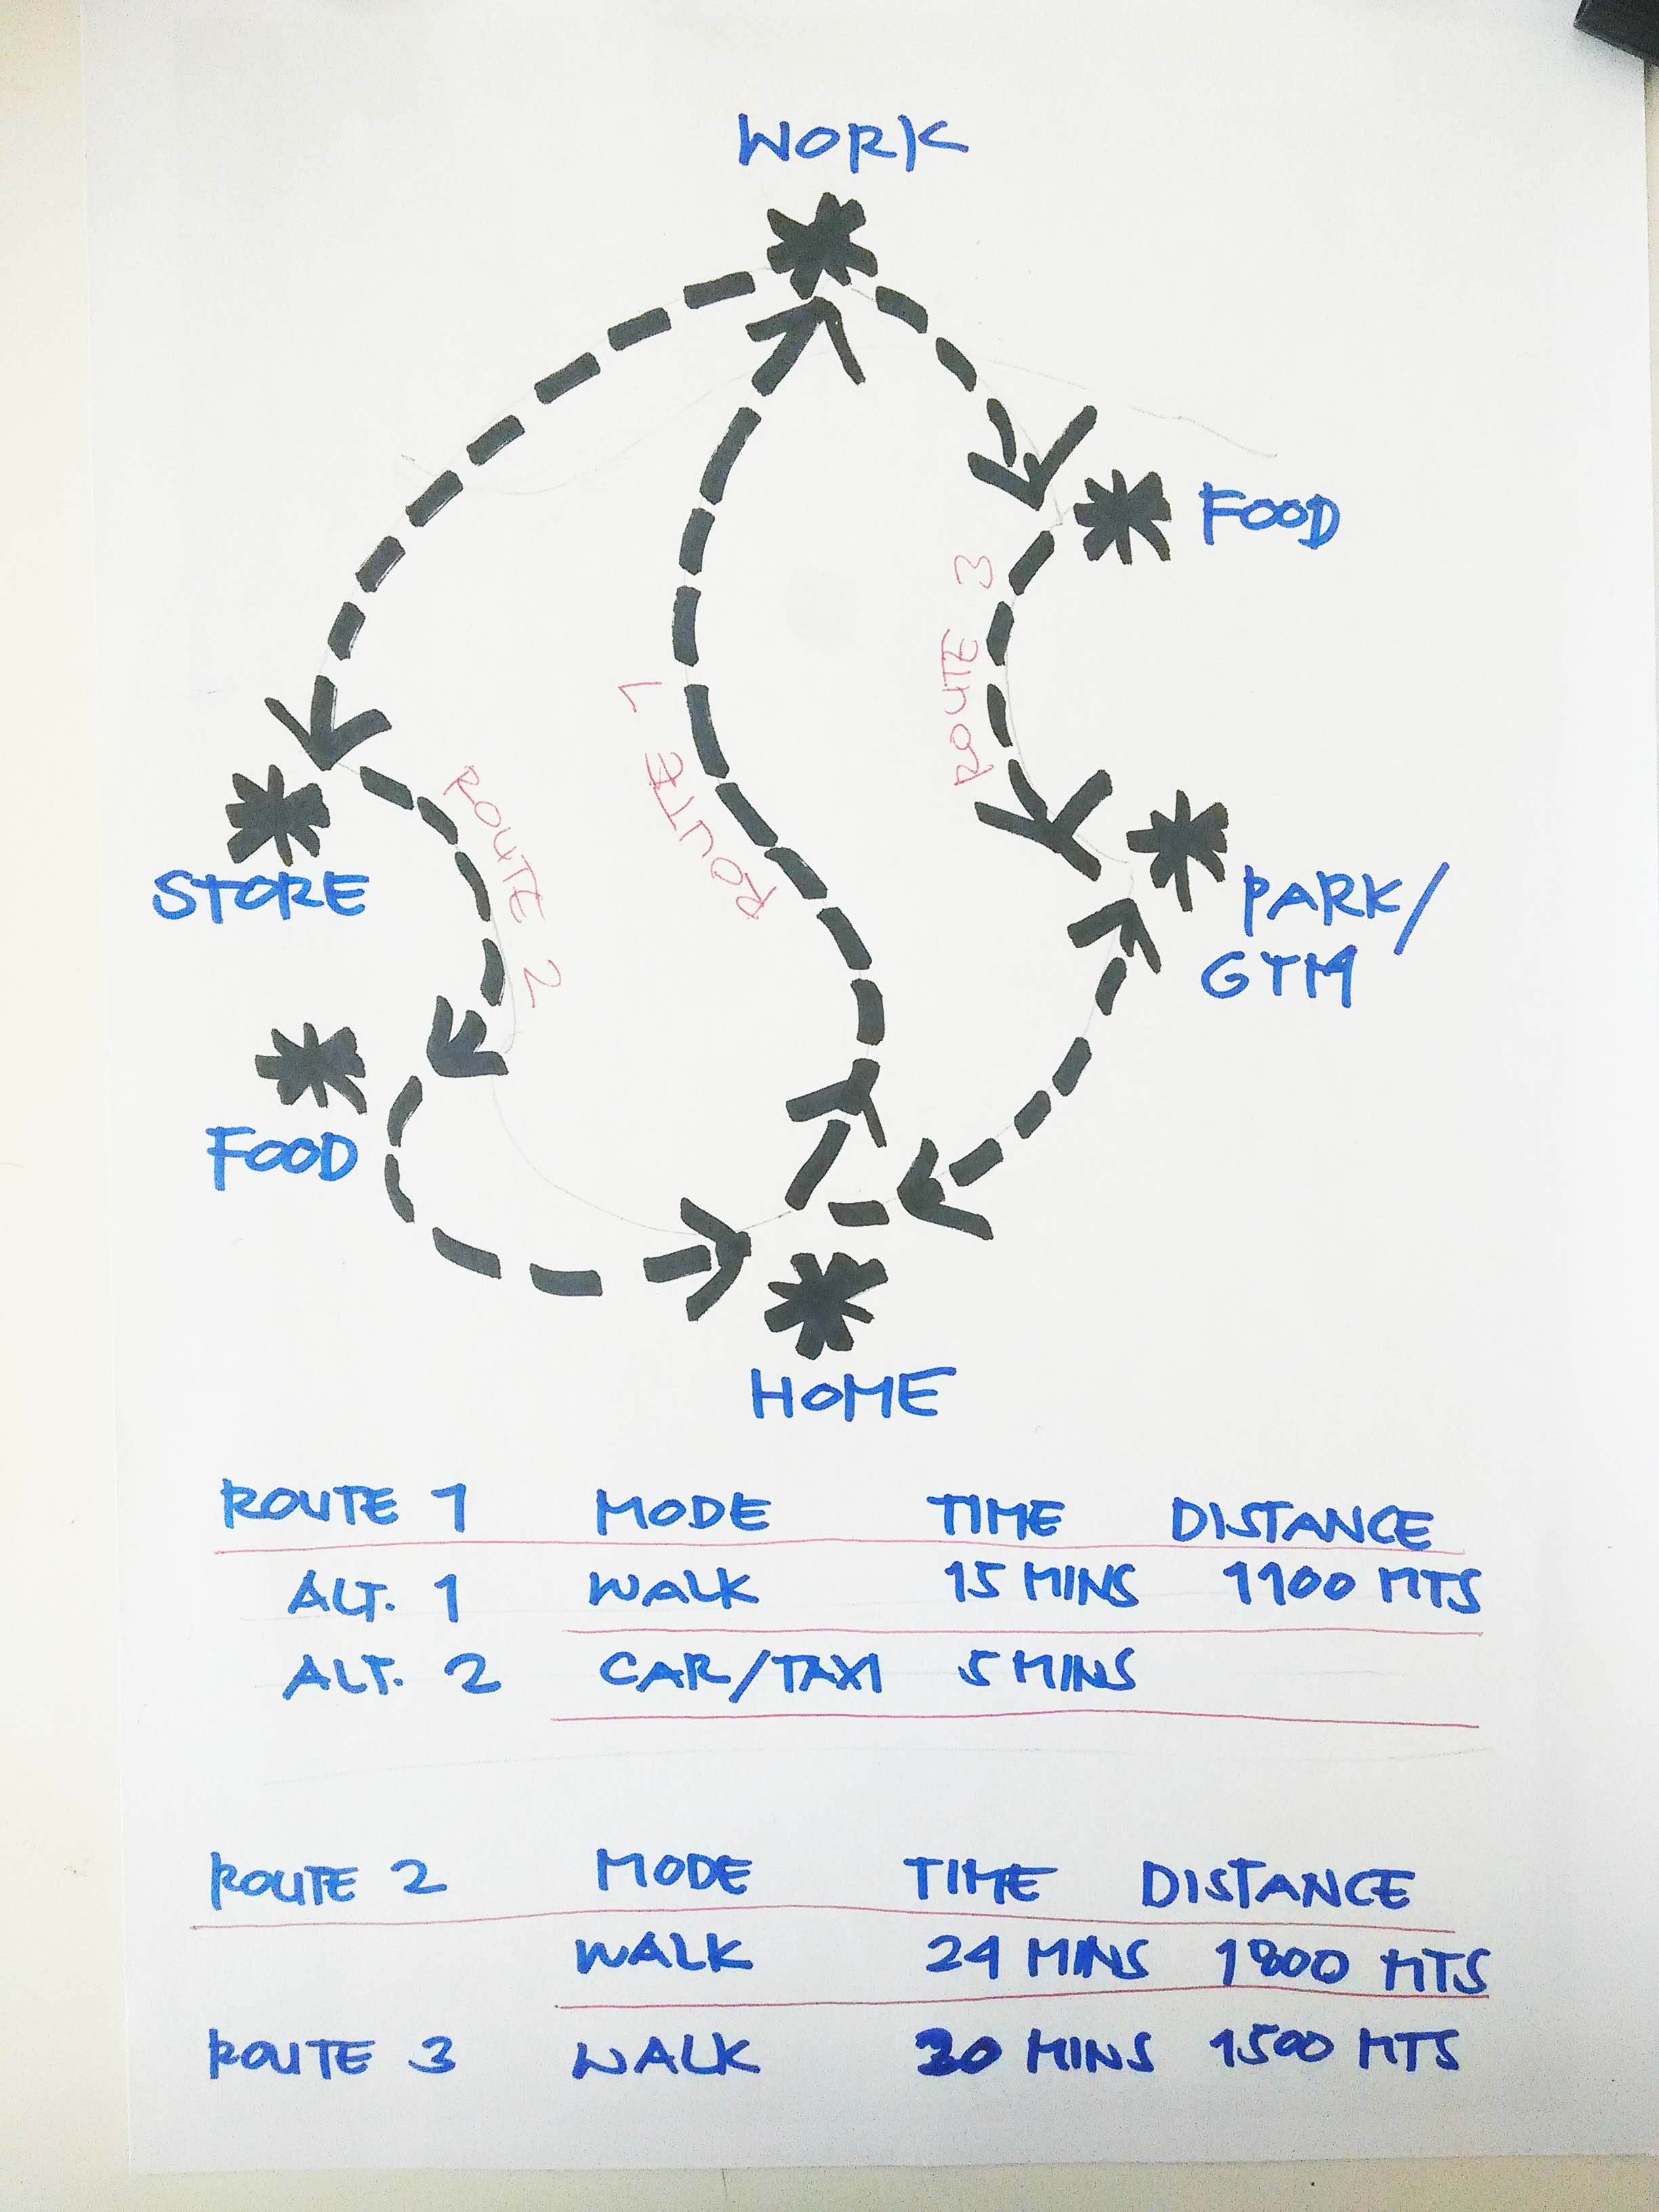 WORK
FOOD
ROUTE 3
ROUTE 1
ROUTE 2
STORE
PARK/
GYM
FOOD
HOME
ROUTE 1 MODE TIME DISTANCE
ALT. 1 WALK 15 MINS 1100 MTS
ALT. 2 CAR/TAXI 5 MINS
ROUTE 2 MODE TIME DISTANCE
WALK 24 MINS 1800 MTS
ROUTE 3 WALK MINS 1500 MTS